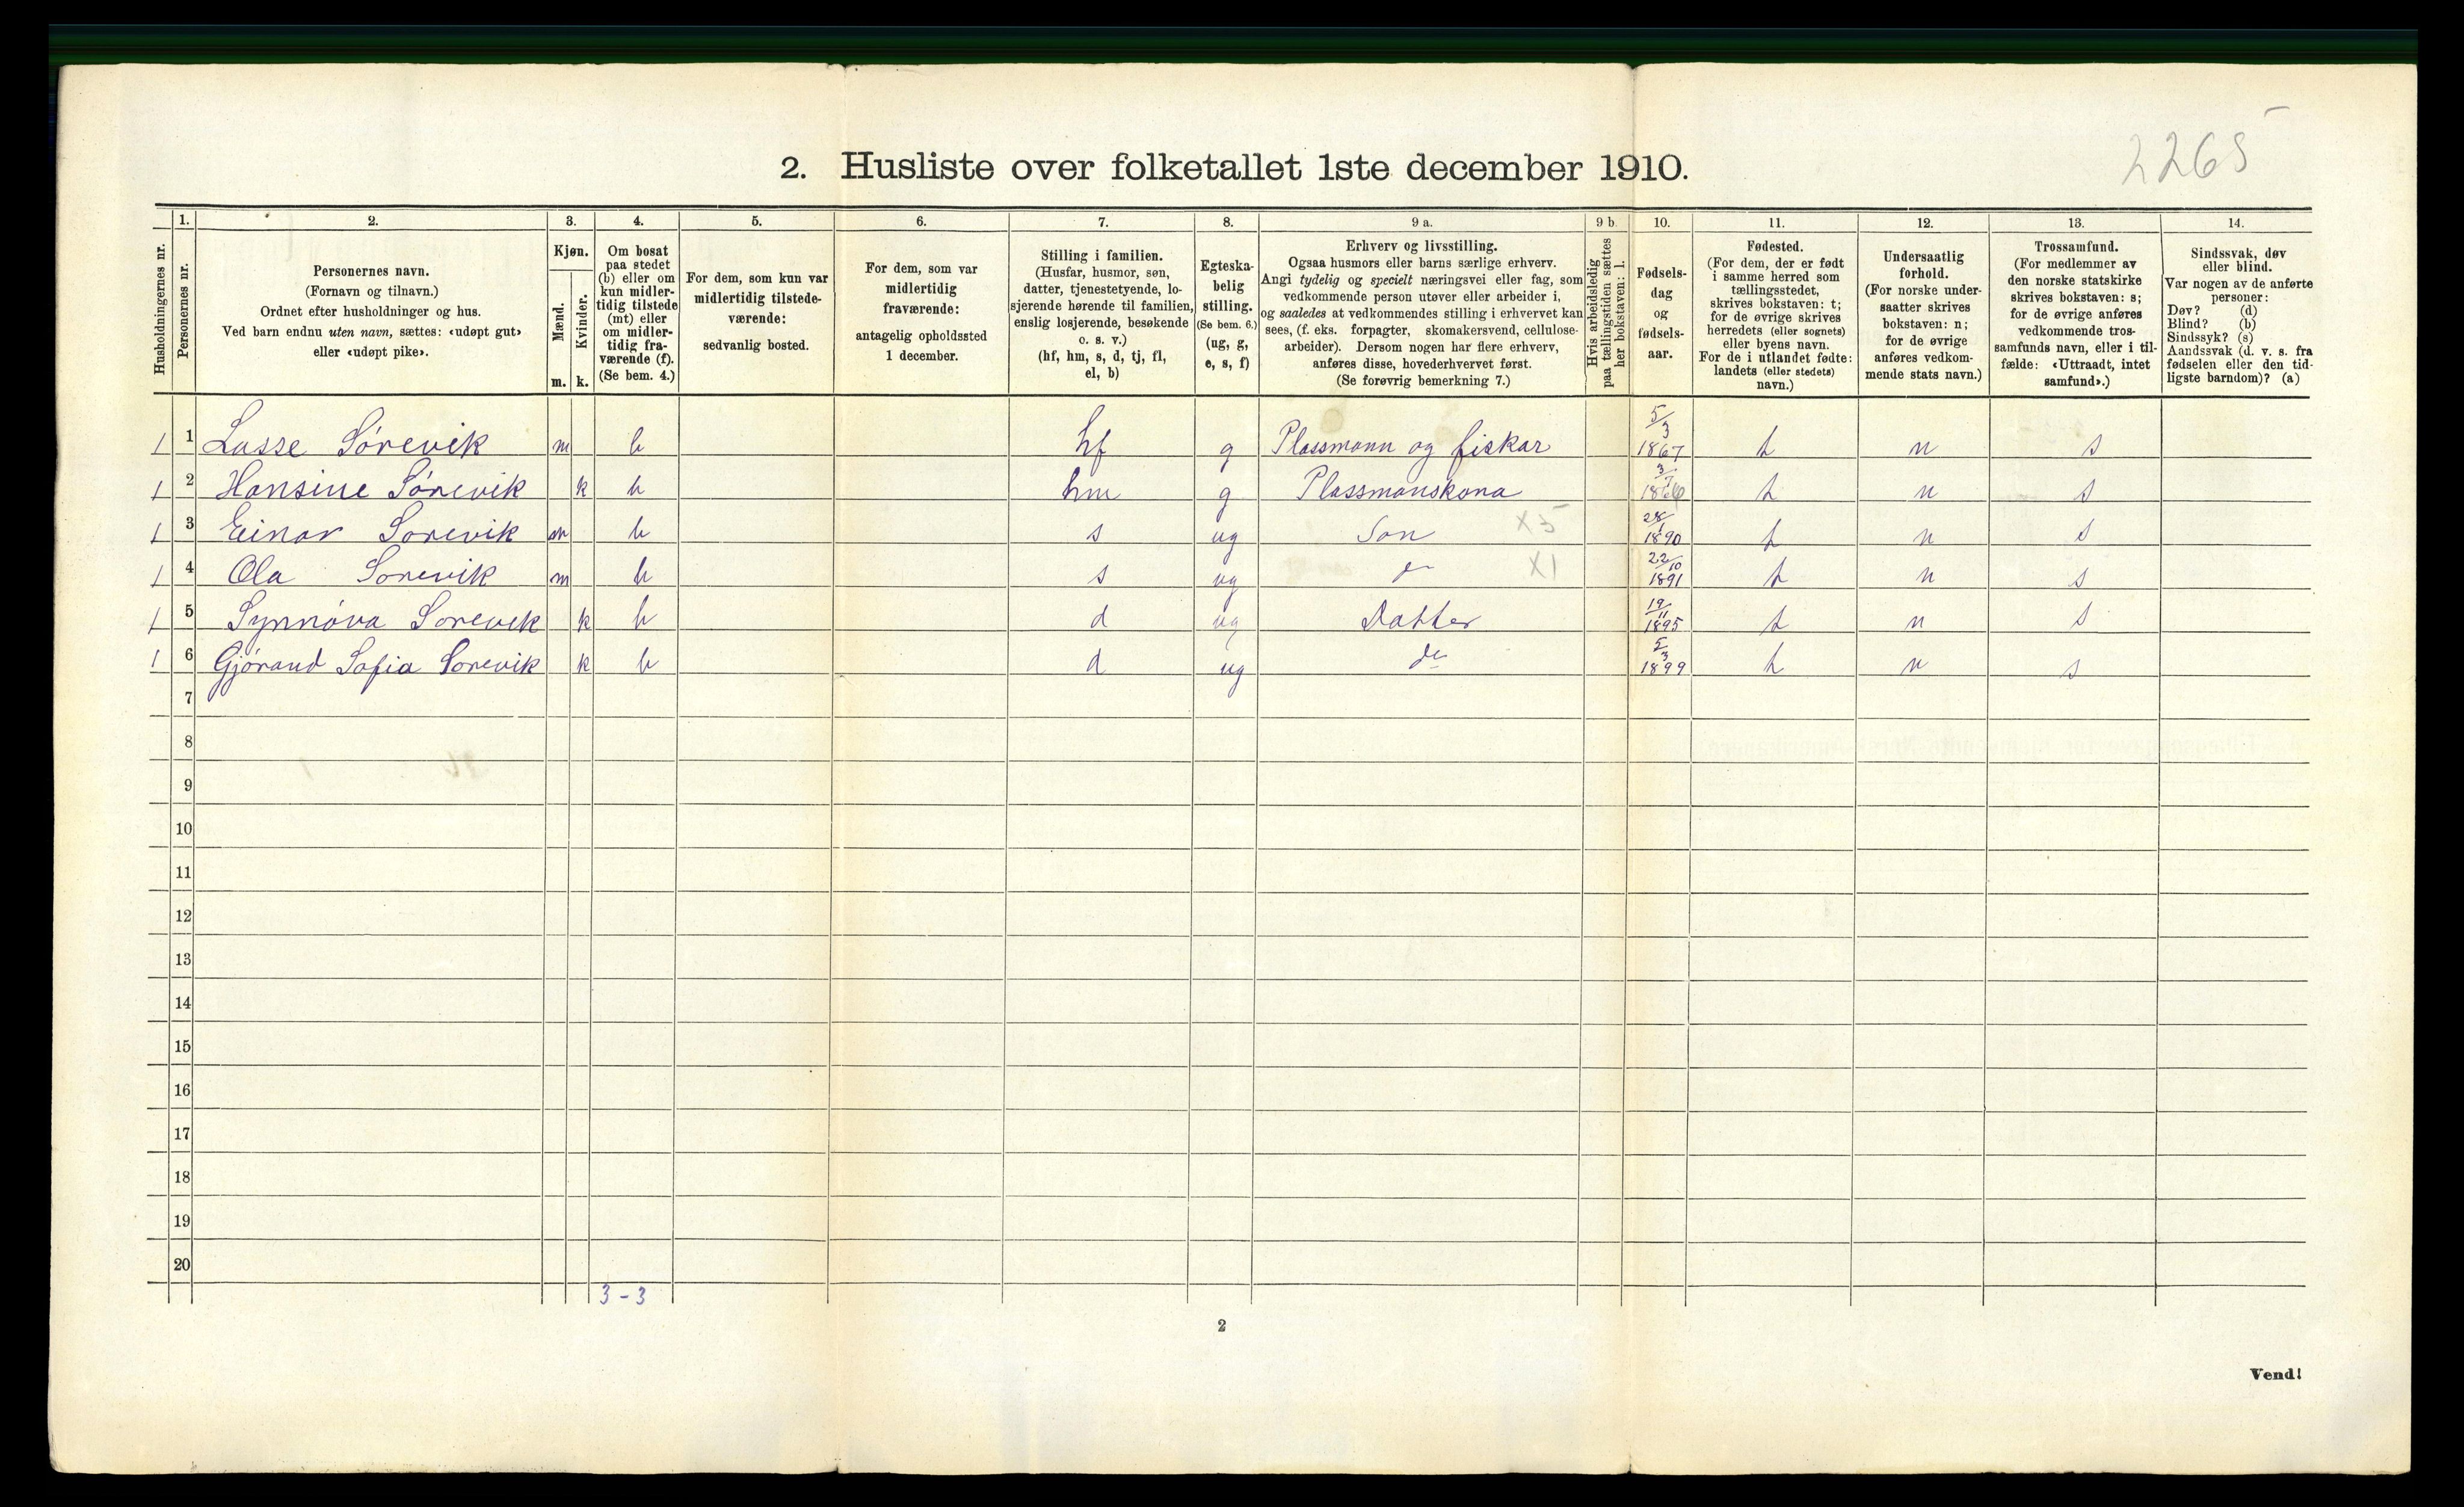 2265
2. Husliste over folketallet 1ste december 1910.
Husholdningernes nr.
1. Personernes nr.
2. Personernes navn.
(Fornavn og tilnavn.)
Ordnet efter husholdninger og hus.
Ved barn endnu uten navn, sættes: «udøpt gut»
eller «udøpt pike».
3. Kjøn.
Mænd. m.
Kvinder. k.
4. Om bosat
paa stedet
(b) eller om
kun midler-
tidig tilstede
(mt) eller
om midler-
tidig fra-
værende (f).
(Se bem. 4.)
5. For dem, som kun var
midlertidig tilstede-
værende:
sedvanlig bosted.
6. For dem, som var
midlertidig
fraværende:
antagelig opholdssted
1 december.
7. Stilling i familien.
(Husfar, husmor, søn,
datter, tjenestetyende, lo-
sjerende hørende til familien,
enslig losjerende, besøkende
o. s. v.)
(hf, hm, s, d, tj, fl,
el, b)
8. Egteska-
belig
stilling.
(Se bem. 6.)
(ug, g,
e, s, f)
9 a. Erhverv og livsstilling.
Ogsaa husmors eller barns særlige erhverv.
Angi tydelig og specielt næringsvei eller fag, som
vedkommende person utøver eller arbeider i,
og saaledes at vedkommendes stilling i erhvervet kan
sees, (f. eks. forpagter, skomakersvend, cellulose-
arbeider). Dersom nogen har flere erhverv,
anføres disse, hovederhvervet først.
(Se forøvrig bemerkning 7.)
9 b. Hvis arbeidsledig
paa tællingstiden sættes
her bokstaven: l.
10. Fødsels-
dag
og
fødsels-
aar.
11. Fødested.
(For dem, der er født
i samme herred som
tællingsstedet,
skrives bokstaven: t;
for de øvrige skrives
herredets (eller sognets)
eller byens navn.
For de i utlandet fødte:
landets (eller stedets)
navn.)
12. Undersaatlig
forhold.
(For norske under-
saatter skrives
bokstaven: n;
for de øvrige
anføres vedkom-
mende stats navn.)
13. Trossamfund.
(For medlemmer av
den norske statskirke
skrives bokstaven: s;
for de øvrige anføres
vedkommende tros-
samfunds navn, eller i til-
fælde: «Uttraadt, intet
samfund».)
14. Sindssvak, døv
eller blind.
Var nogen av de anførte
personer:
Døv? (d)
Blind? (b)
Sindssyk? (s)
Aandssvak (d. v. s. fra
fødselen eller den tid-
ligste barndom)? (a)
1 1 Lasse Sørevik m b hf g Plassmann og fiskar 5/3 1867 t n s
1 2 Hansine Sørevik k b hm g Plassmanskona 3/7 1866 t n s
1 3 Einar Sorevik m b s ug Son X5 28/1 1890 t n s
1 4 Ola Sorevik m b s ug do X1 22/10 1891 t n s
1 5 Synnøva Sorevik k b d ug Datter 19/11 1895 t n s
1 6 Gjørand Sofia Sorevik k b d ug do 5/3 1899 t n s
7
8
9
10
11
12
13
14
15
16
17
18
19
20
3 - 3
2
Vend!